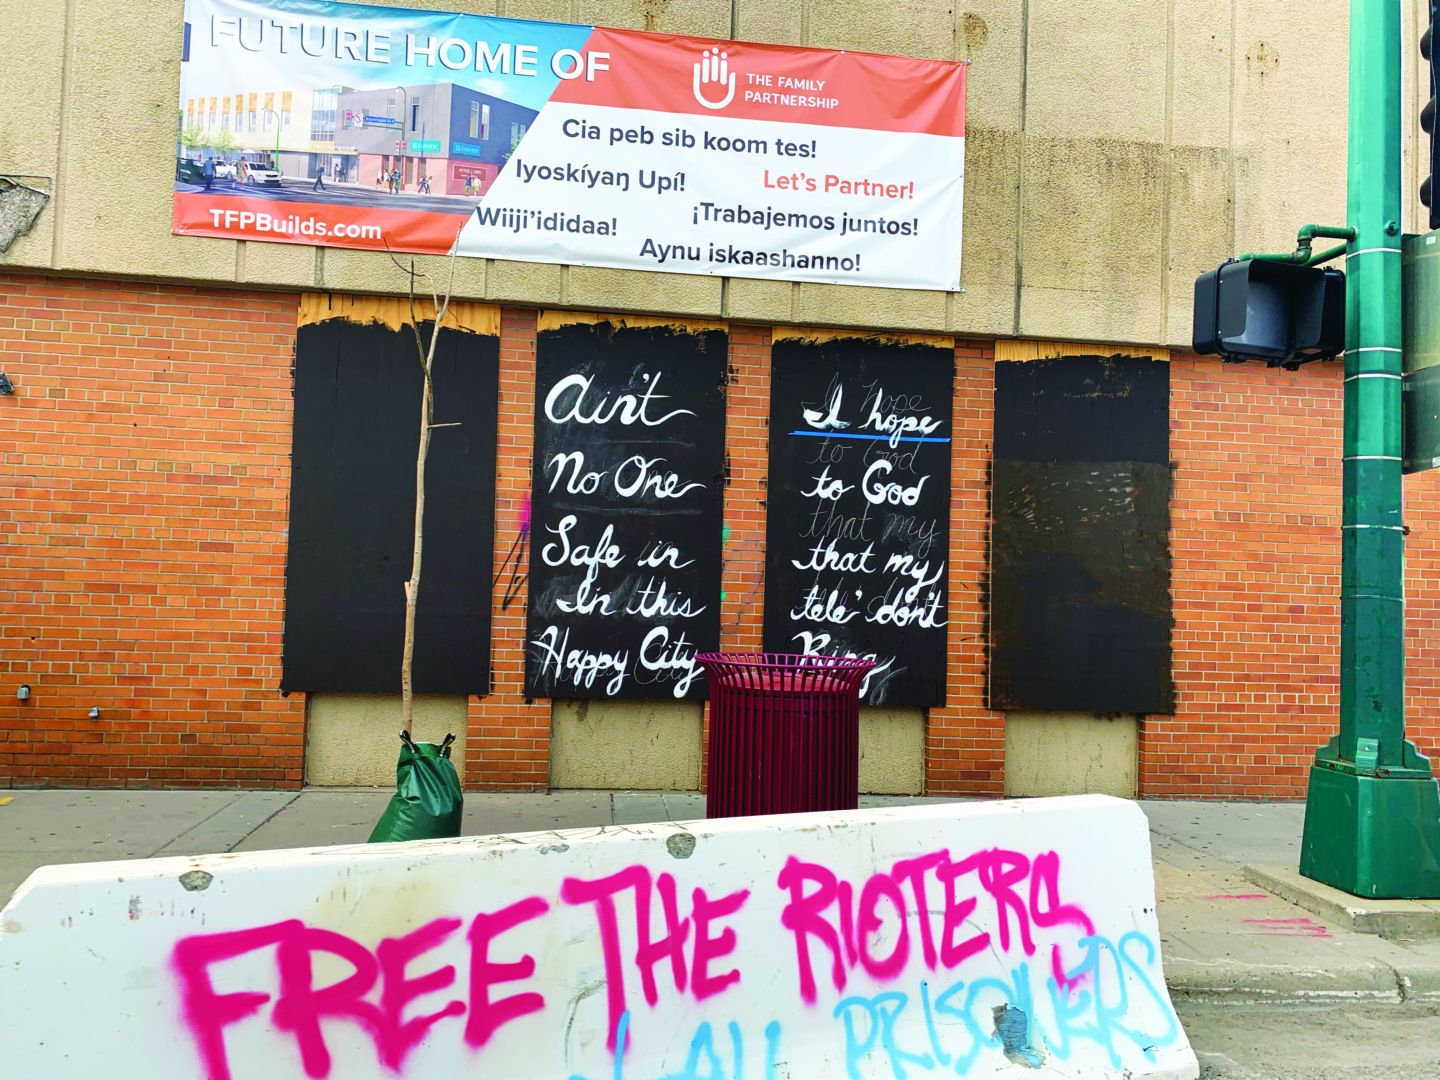 FUTURE HOME OF
THE FAMILY
PARTNERSHIP
Cia peb sib koom tes!
Iyoskíyaŋ Upí!
Let's Partner!
Wiiji'ididaa!
¡Trabajemos juntos!
Aynu iskaashanno!
TFPBuilds.com
Ain't
No One
Safe in
In this
Happy City
I hope
to God
that my
tele' don't
Ring
FREE THE RIOTERS
ALL PRISONERS